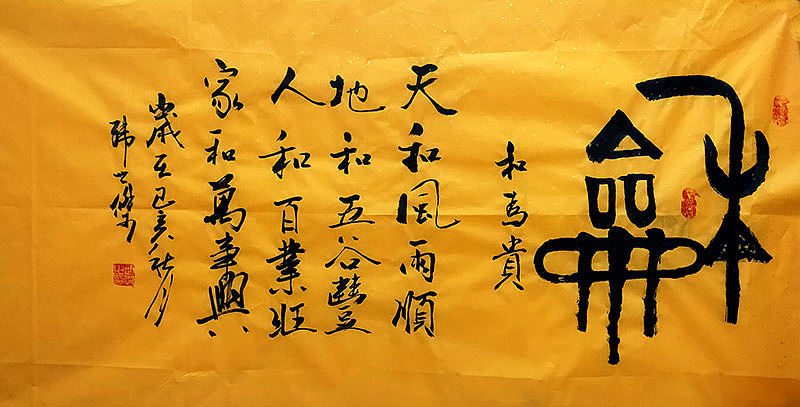 龢
和為貴
天和風雨順
地和五谷豐
人和百業旺
家和萬事興
歲在己亥秋月